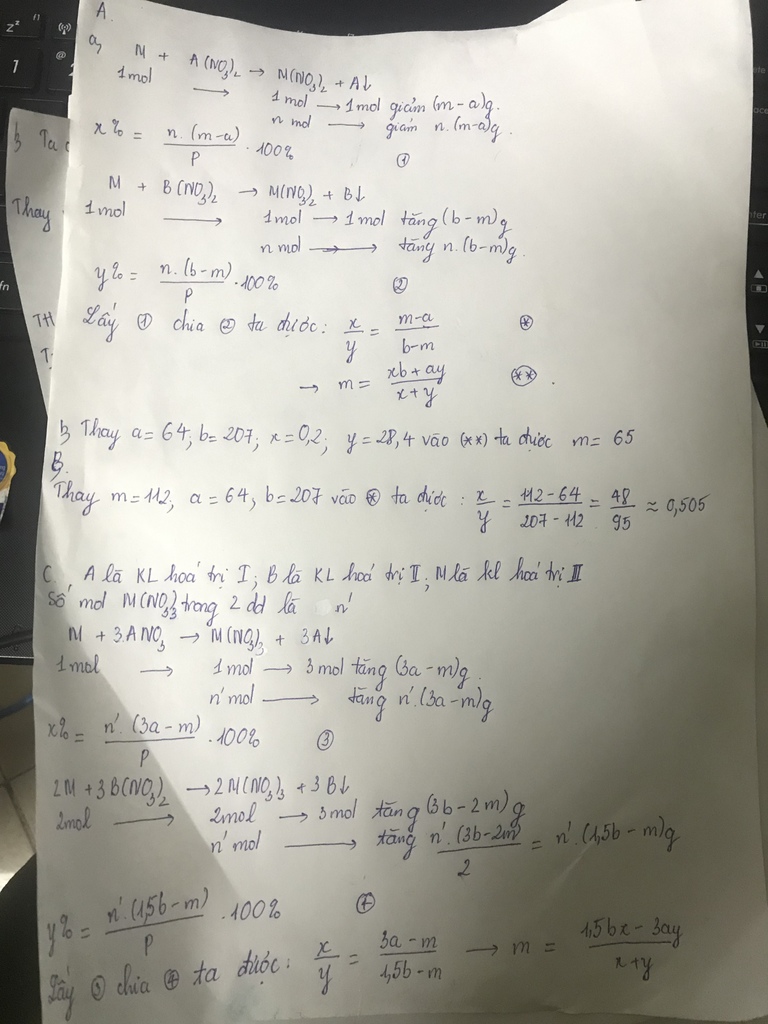 A.
a, M + A(NO3)2 → M(NO3)2 + A↓
1mol → 1mol → 1mol giảm (m-a)g.
n mol → giảm n.(m-a)g.
x% = n.(m-a)/p . 100% ①
M + B(NO3)2 → M(NO3)2 + B↓
1mol → 1mol → 1mol tăng (b-m)g
n mol → tăng n.(b-m)g.
y% = n.(b-m)/p . 100% ②
Lấy ① chia ② ta được: x/y = m-a/b-m ⊛
→ m = xb+ay/x+y (**).
b, Thay a=64; b=207; x=0,2; y=28,4 vào (**) ta được m= 65
B.
Thay m=112; a=64; b=207 vào ⊛ ta được: x/y = 112-64/207-112 = 48/95 ≈ 0,505
C. A là KL hoá trị I; B là KL hoá trị II; M là kl hoá trị III
Số mol M(NO3)3 trong 2 dd là n'
M + 3.ANO3 → M(NO3)3 + 3A↓
1mol → 1mol → 3mol tăng (3a-m)g.
n'mol → tăng n'.(3a-m)g
x% = n'.(3a-m)/p . 100% ③
2M + 3B(NO3)2 → 2M(NO3)3 + 3B↓
2mol → 2mol → 3mol tăng (3b-2m)g
n' mol → tăng n'.(3b-2m)/2 = n'.(1,5b-m)g
y% = n'.(1,5b-m)/p . 100% ④
Lấy ③ chia ④ ta được: x/y = 3a-m/1,5b-m → m = 1,5bx-3ay/x+y
b Ta
Thay
TH